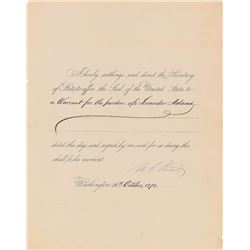 I hereby authorize and direct the Secretary
of State to affix the Seal of the United States to
a Warrant for the pardon of Leander
dated this day, and signed by me, and for so doing this
shall be his warrant.
Washington, 15th October, 1872.